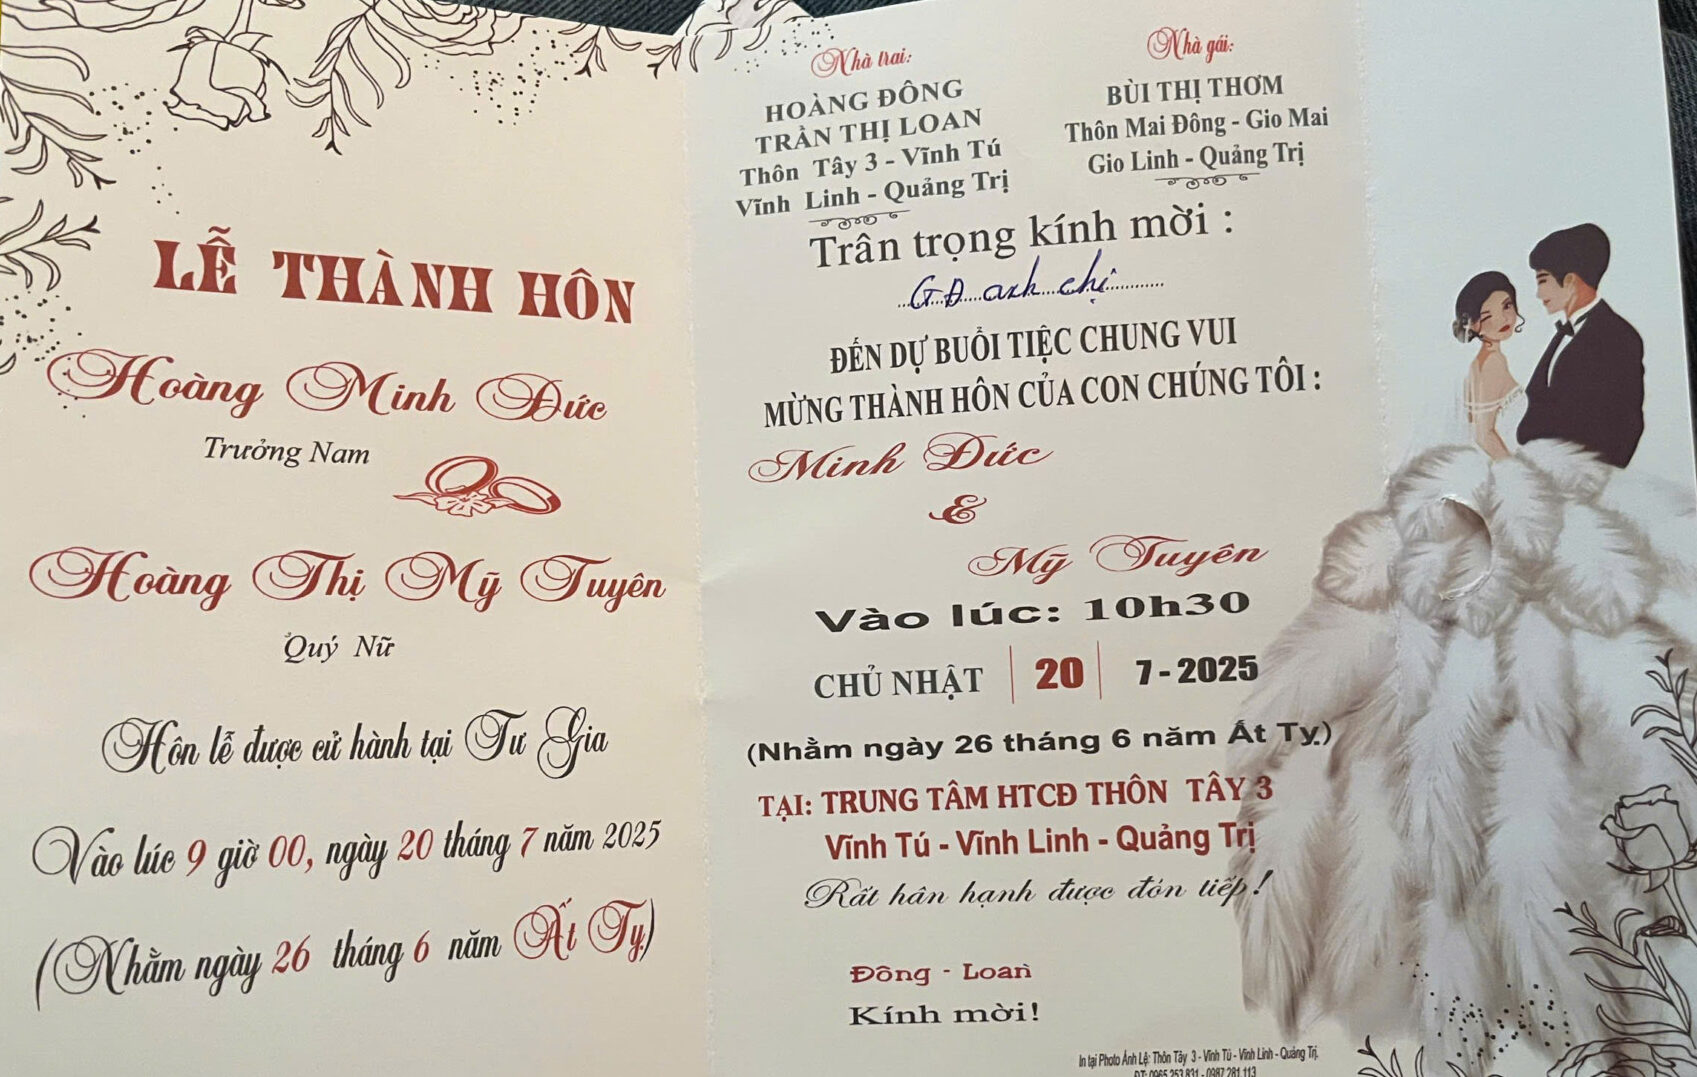 LỄ THÀNH HÔN
Hoàng Minh Đức
Trưởng Nam
Hoàng Thị Mỹ Tuyên
Quý Nữ
Hôn lễ được cử hành tại Tư Gia
Vào lúc 9 giờ 00, ngày 20 tháng 7 năm 2025
(Nhằm ngày 26 tháng 6 năm Ất Tỵ)
Nhà trai:
HOÀNG ĐÔNG
TRẦN THỊ LOAN
Thôn Tây 3 - Vĩnh Tú
Vĩnh Linh - Quảng Trị
Nhà gái:
BÙI THỊ THƠM
Thôn Mai Đông - Gio Mai
Gio Linh - Quảng Trị
Trân trọng kính mời :
GĐ anh chị
ĐẾN DỰ BUỔI TIỆC CHUNG VUI
MỪNG THÀNH HÔN CỦA CON CHÚNG TÔI :
Minh Đức
&
Mỹ Tuyên
Vào lúc: 10h30
CHỦ NHẬT 20 7 - 2025
(Nhằm ngày 26 tháng 6 năm Ất Tỵ)
TẠI: TRUNG TÂM HTCĐ THÔN TÂY 3
Vĩnh Tú - Vĩnh Linh - Quảng Trị
Rất hân hạnh được đón tiếp!
Đông - Loan
Kính mời!
In tại Photo Ánh Lệ: Thôn Tây 3 - Vĩnh Tú - Vĩnh Linh - Quảng Trị.
ĐT: 0965 253 831 - 0987 281 113